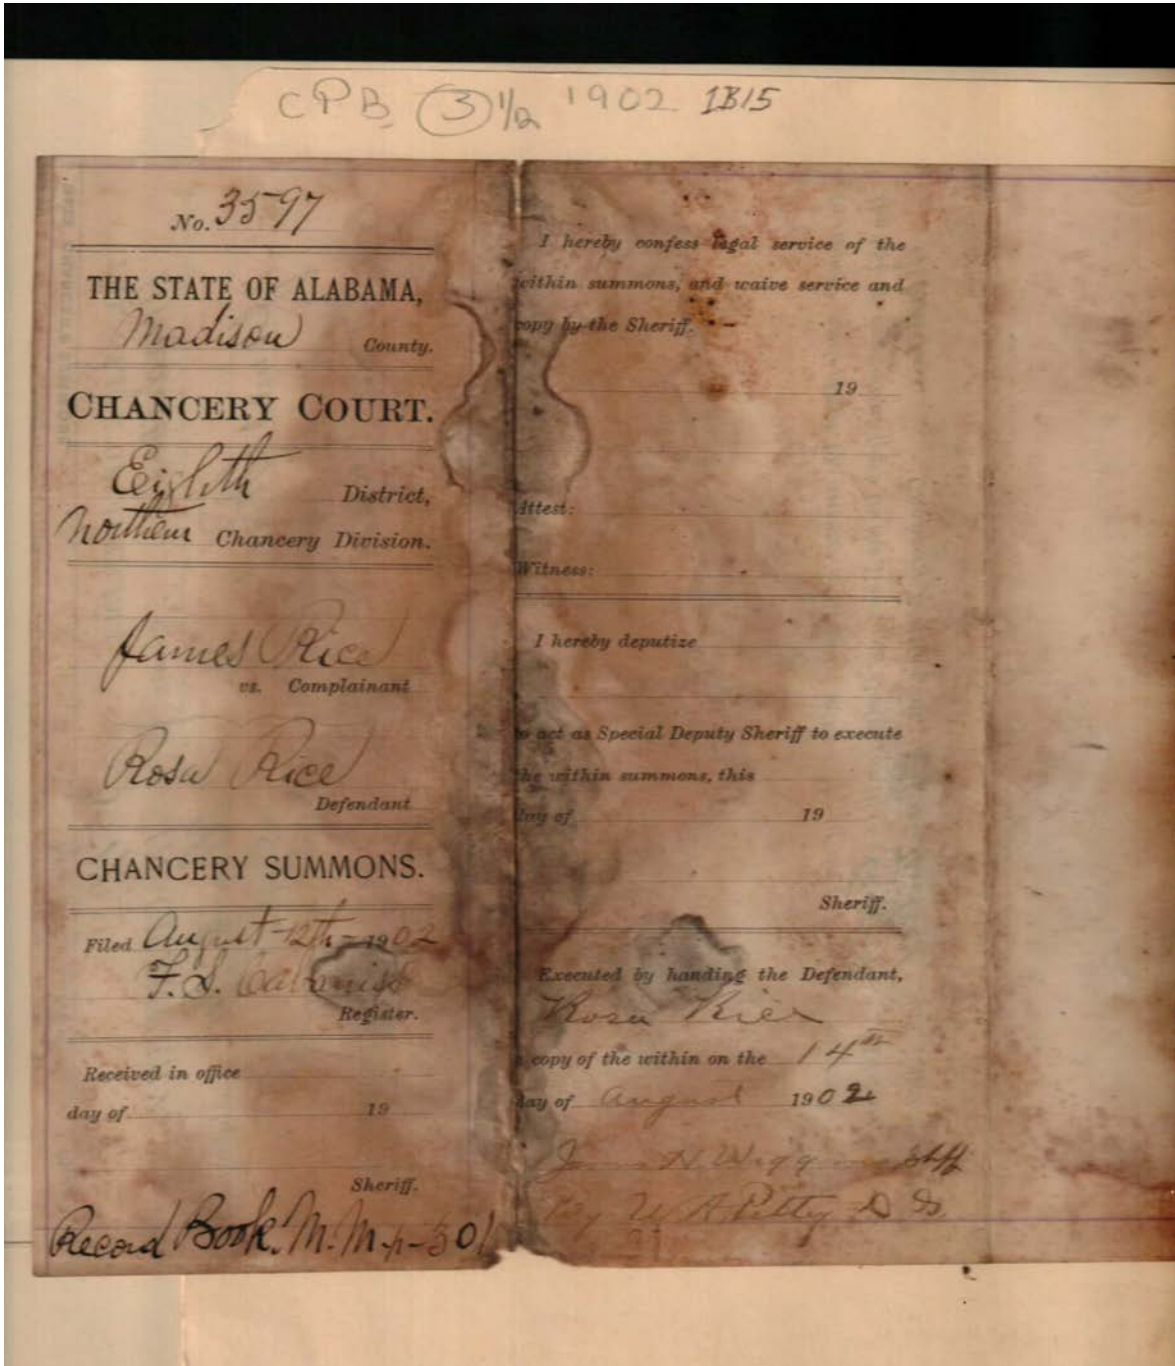 CPB 3 1/2 1902 1B15
No. 3597
THE STATE OF ALABAMA,
Madison County.
CHANCERY COURT.
Eighth District,
Northern Chancery Division.
James Rice
vs. Complainant
Rosa Rice
Defendant
CHANCERY SUMMONS.
Filed August 12th 1902
F. S. Cabaniss
Register.
Received in office
day of 19
Sheriff.
Record Book. M.M. p-301
I hereby confess legal service of the
within summons, and waive service and
copy by the Sheriff.
19
Attest:
Witness:
I hereby deputize
to act as Special Deputy Sheriff to execute
the within summons, this
day of 19
Sheriff.
Executed by handing the Defendant,
Rosa Rice
a copy of the within on the 14th
day of August 1902
Shff
By W. A. Petty D S.